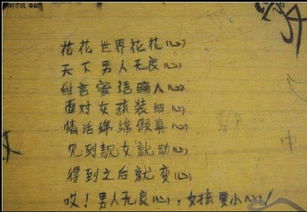 花花世界花花(心)
天下男人无良(心)
甜言蜜语骗人(心)
面对女孩装细(心)
情话绵绵假真(心)
见到靓女就动(心)
得到之后就变(心)
哎!男人无良(心),女孩要小(心)!